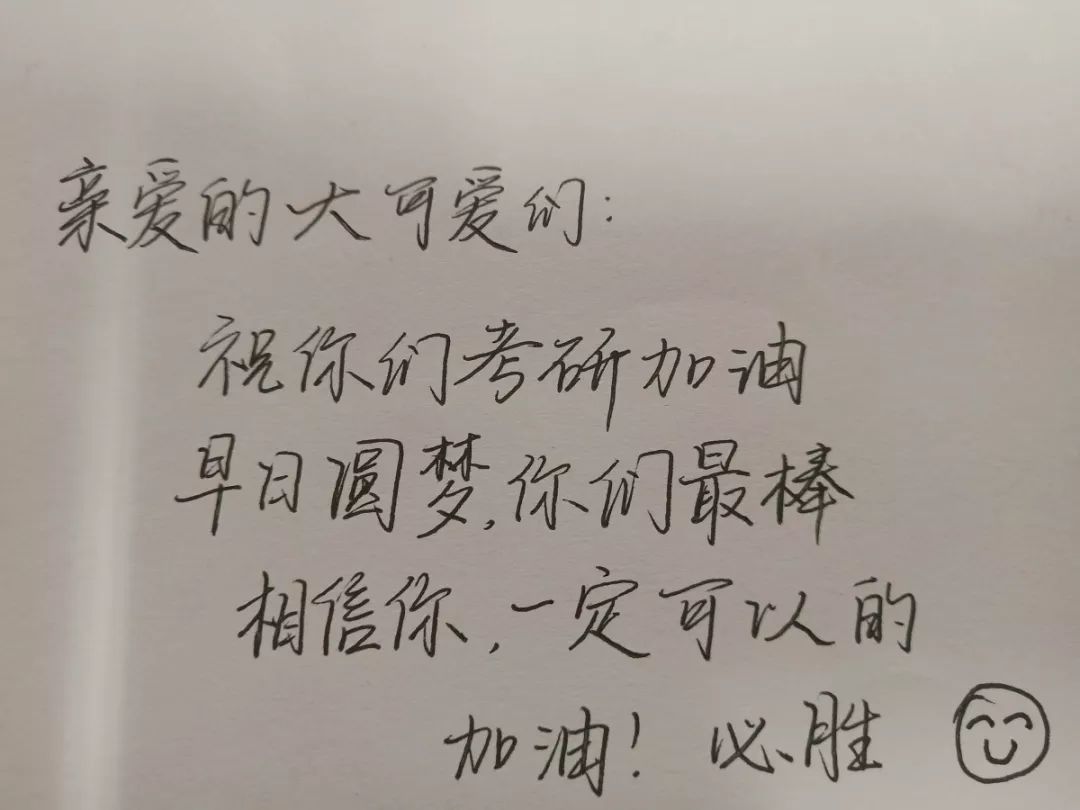 亲爱的大可爱们：
祝你们考研加油
早日圆梦，你们最棒
相信你，一定可以的
加油！必胜